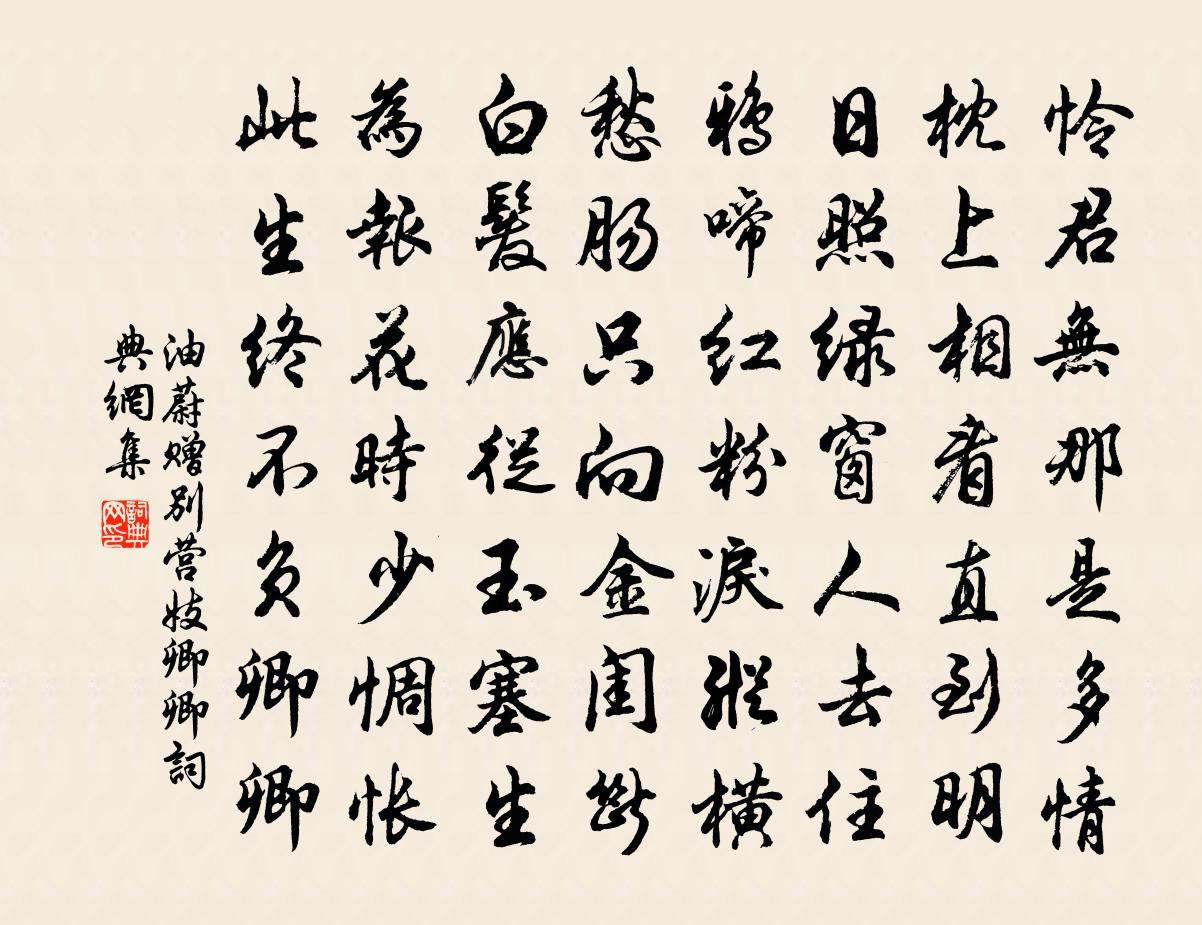 怜君無那是多情
枕上相看直到明
日照緑窗人去住
鴉啼紅粉淚縱横
愁肠只向金閨斷
白髮應從玉塞生
為報花時少惆怅
此生终不负卿卿
油蔚赠别营妓卿卿詞
典網集
詞典网印